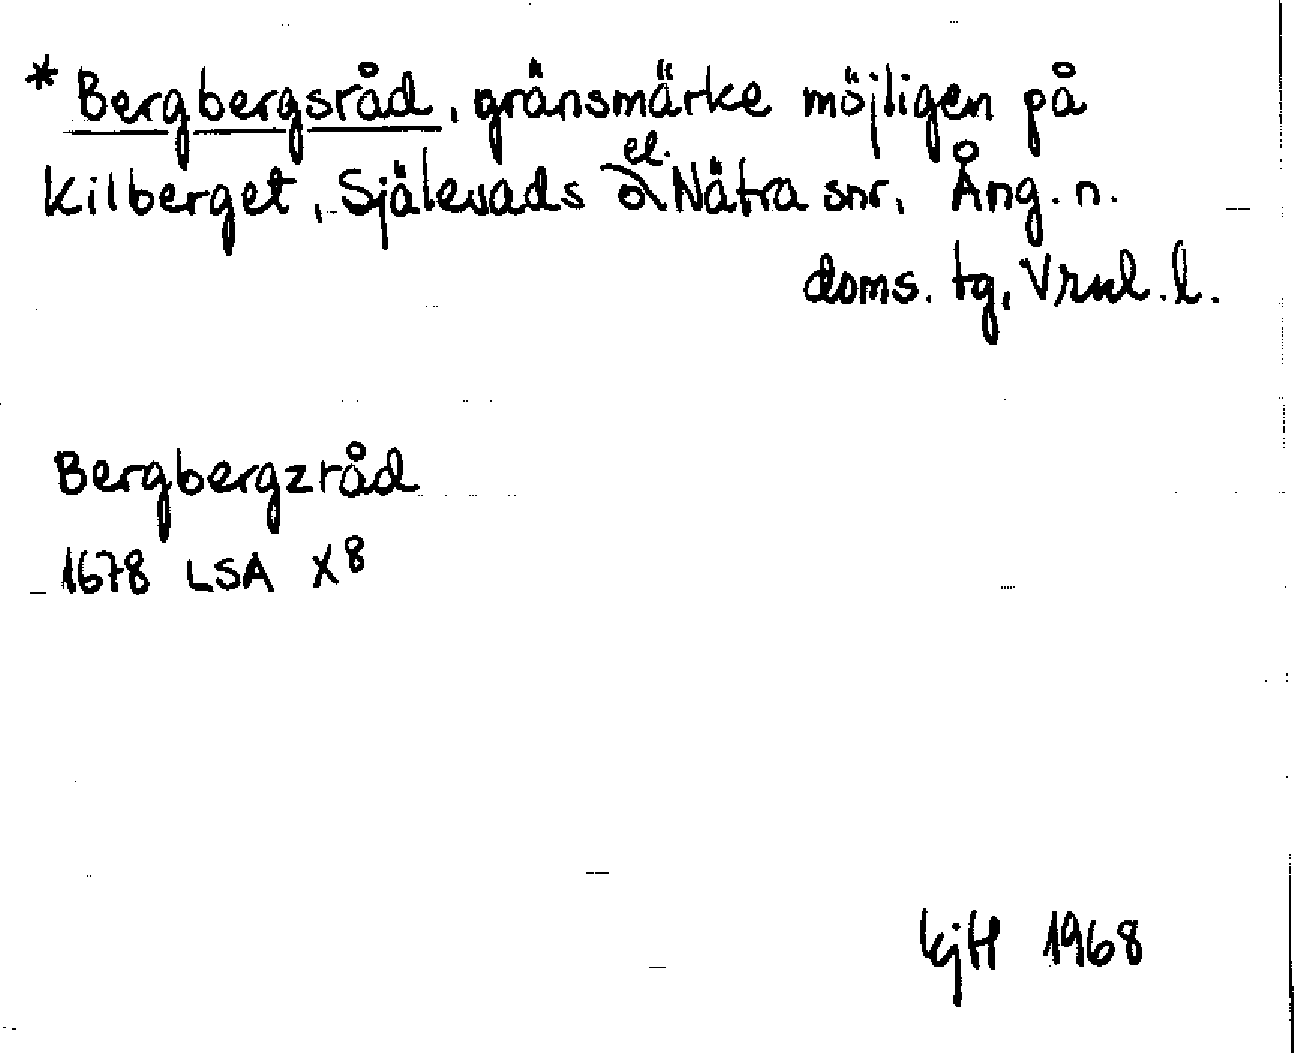 * Bergbergsråd, gränsmärke möjligen på
Kilberget, Själevads el. Nätra snr, Ång. n.
doms. tg, Vrnl. l.
Bergbergzråd
1678 LSA X8
KjH 1968